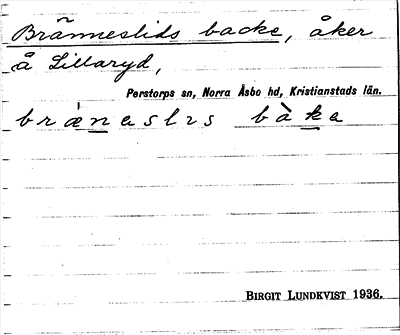 Bränneslids backe, åker
å Lillaryd,
Perstorps sn, Norra Åsbo hd, Kristianstads län.
bræneslıs bàka
BIRGIT LUNDKVIST 1936.